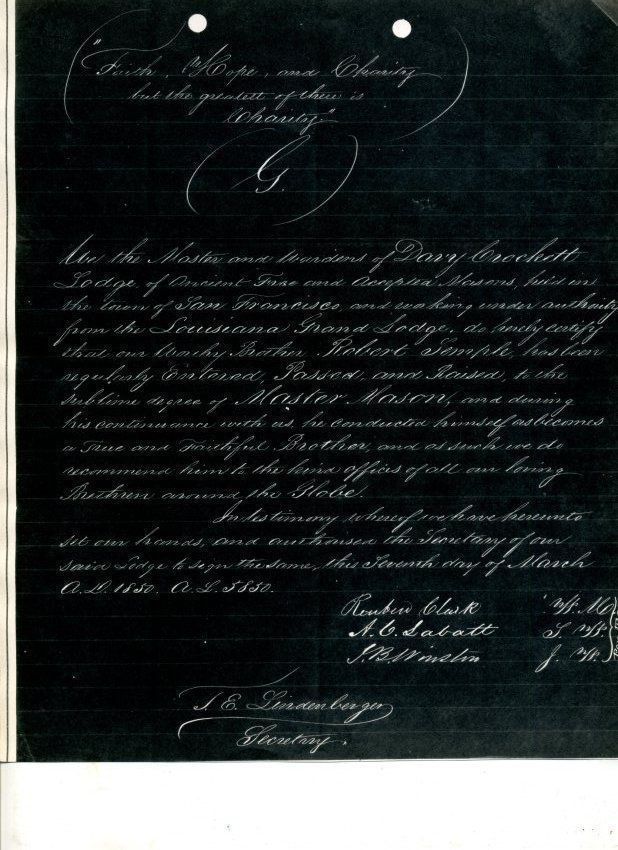 "Faith, Hope, and Charity
but the greatest of these is
Charity"
G.
We the Master and Wardens of Davy Crockett
Lodge of Ancient Free and Accepted Masons, held in
the town of San Francisco and working under authority
from the Louisiana Grand Lodge, do hereby certify
that our Worthy Brother Robert Semple, has been
regularly Entered, Passed, and Raised, to the
sublime degree of Master Mason, and during
his continuance with us, he conducted himself as becomes
a True and Faithful Brother, and as such we do
recommend him to the kind offices of all our loving
Brethren around the Globe.
In testimony whereof we have hereunto
set our hands, and authorised the Secretary of our
said Lodge to sign the same, this Seventh day of March
A.D. 1850. A.L. 5850.
Reuben Clark W. M.
A. C. Labatt S. W.
J. B. Winston J. W.
T. E. Lindenberger
Secretary.